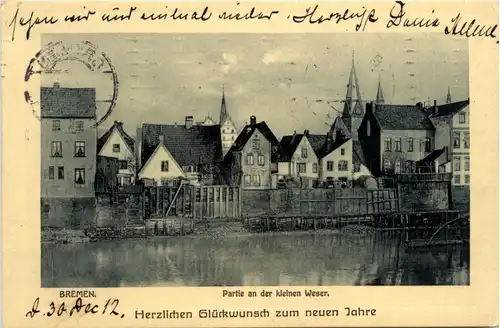 sehen wir uns einmal wieder. Herzliche
BREMEN.
Partie an der kleinen Weser.
D. 30 Dec 12.
Herzlichen Glückwunsch zum neuen Jahre